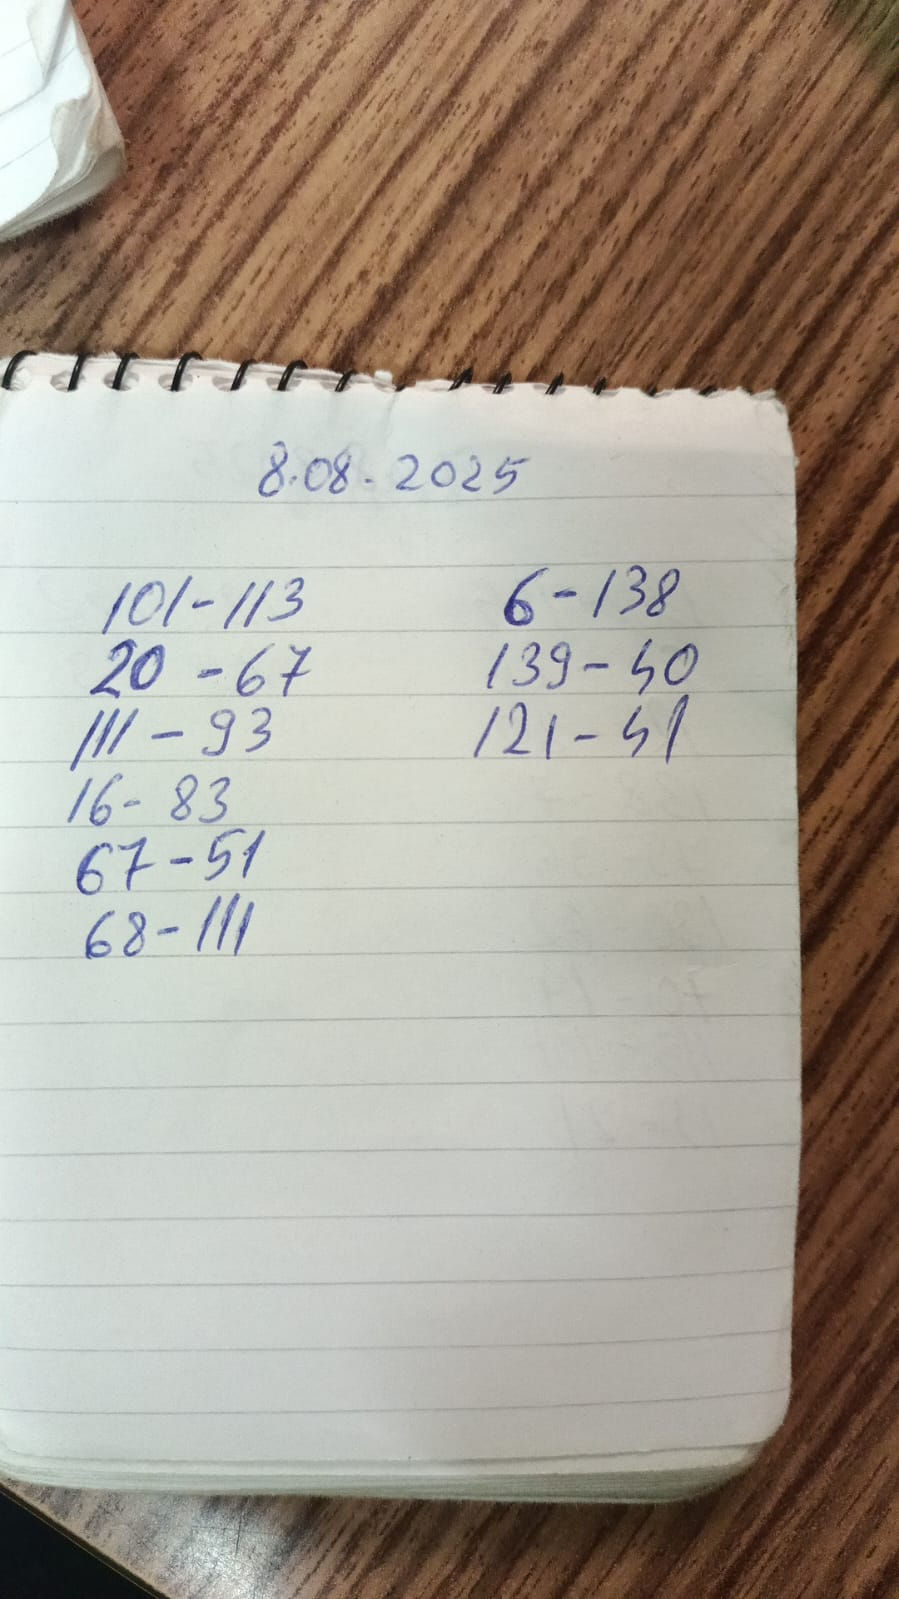 8.08.2025
101-113
20 - 67
111 - 93
16- 83
67-51
68-111
6-138
139-40
121-41